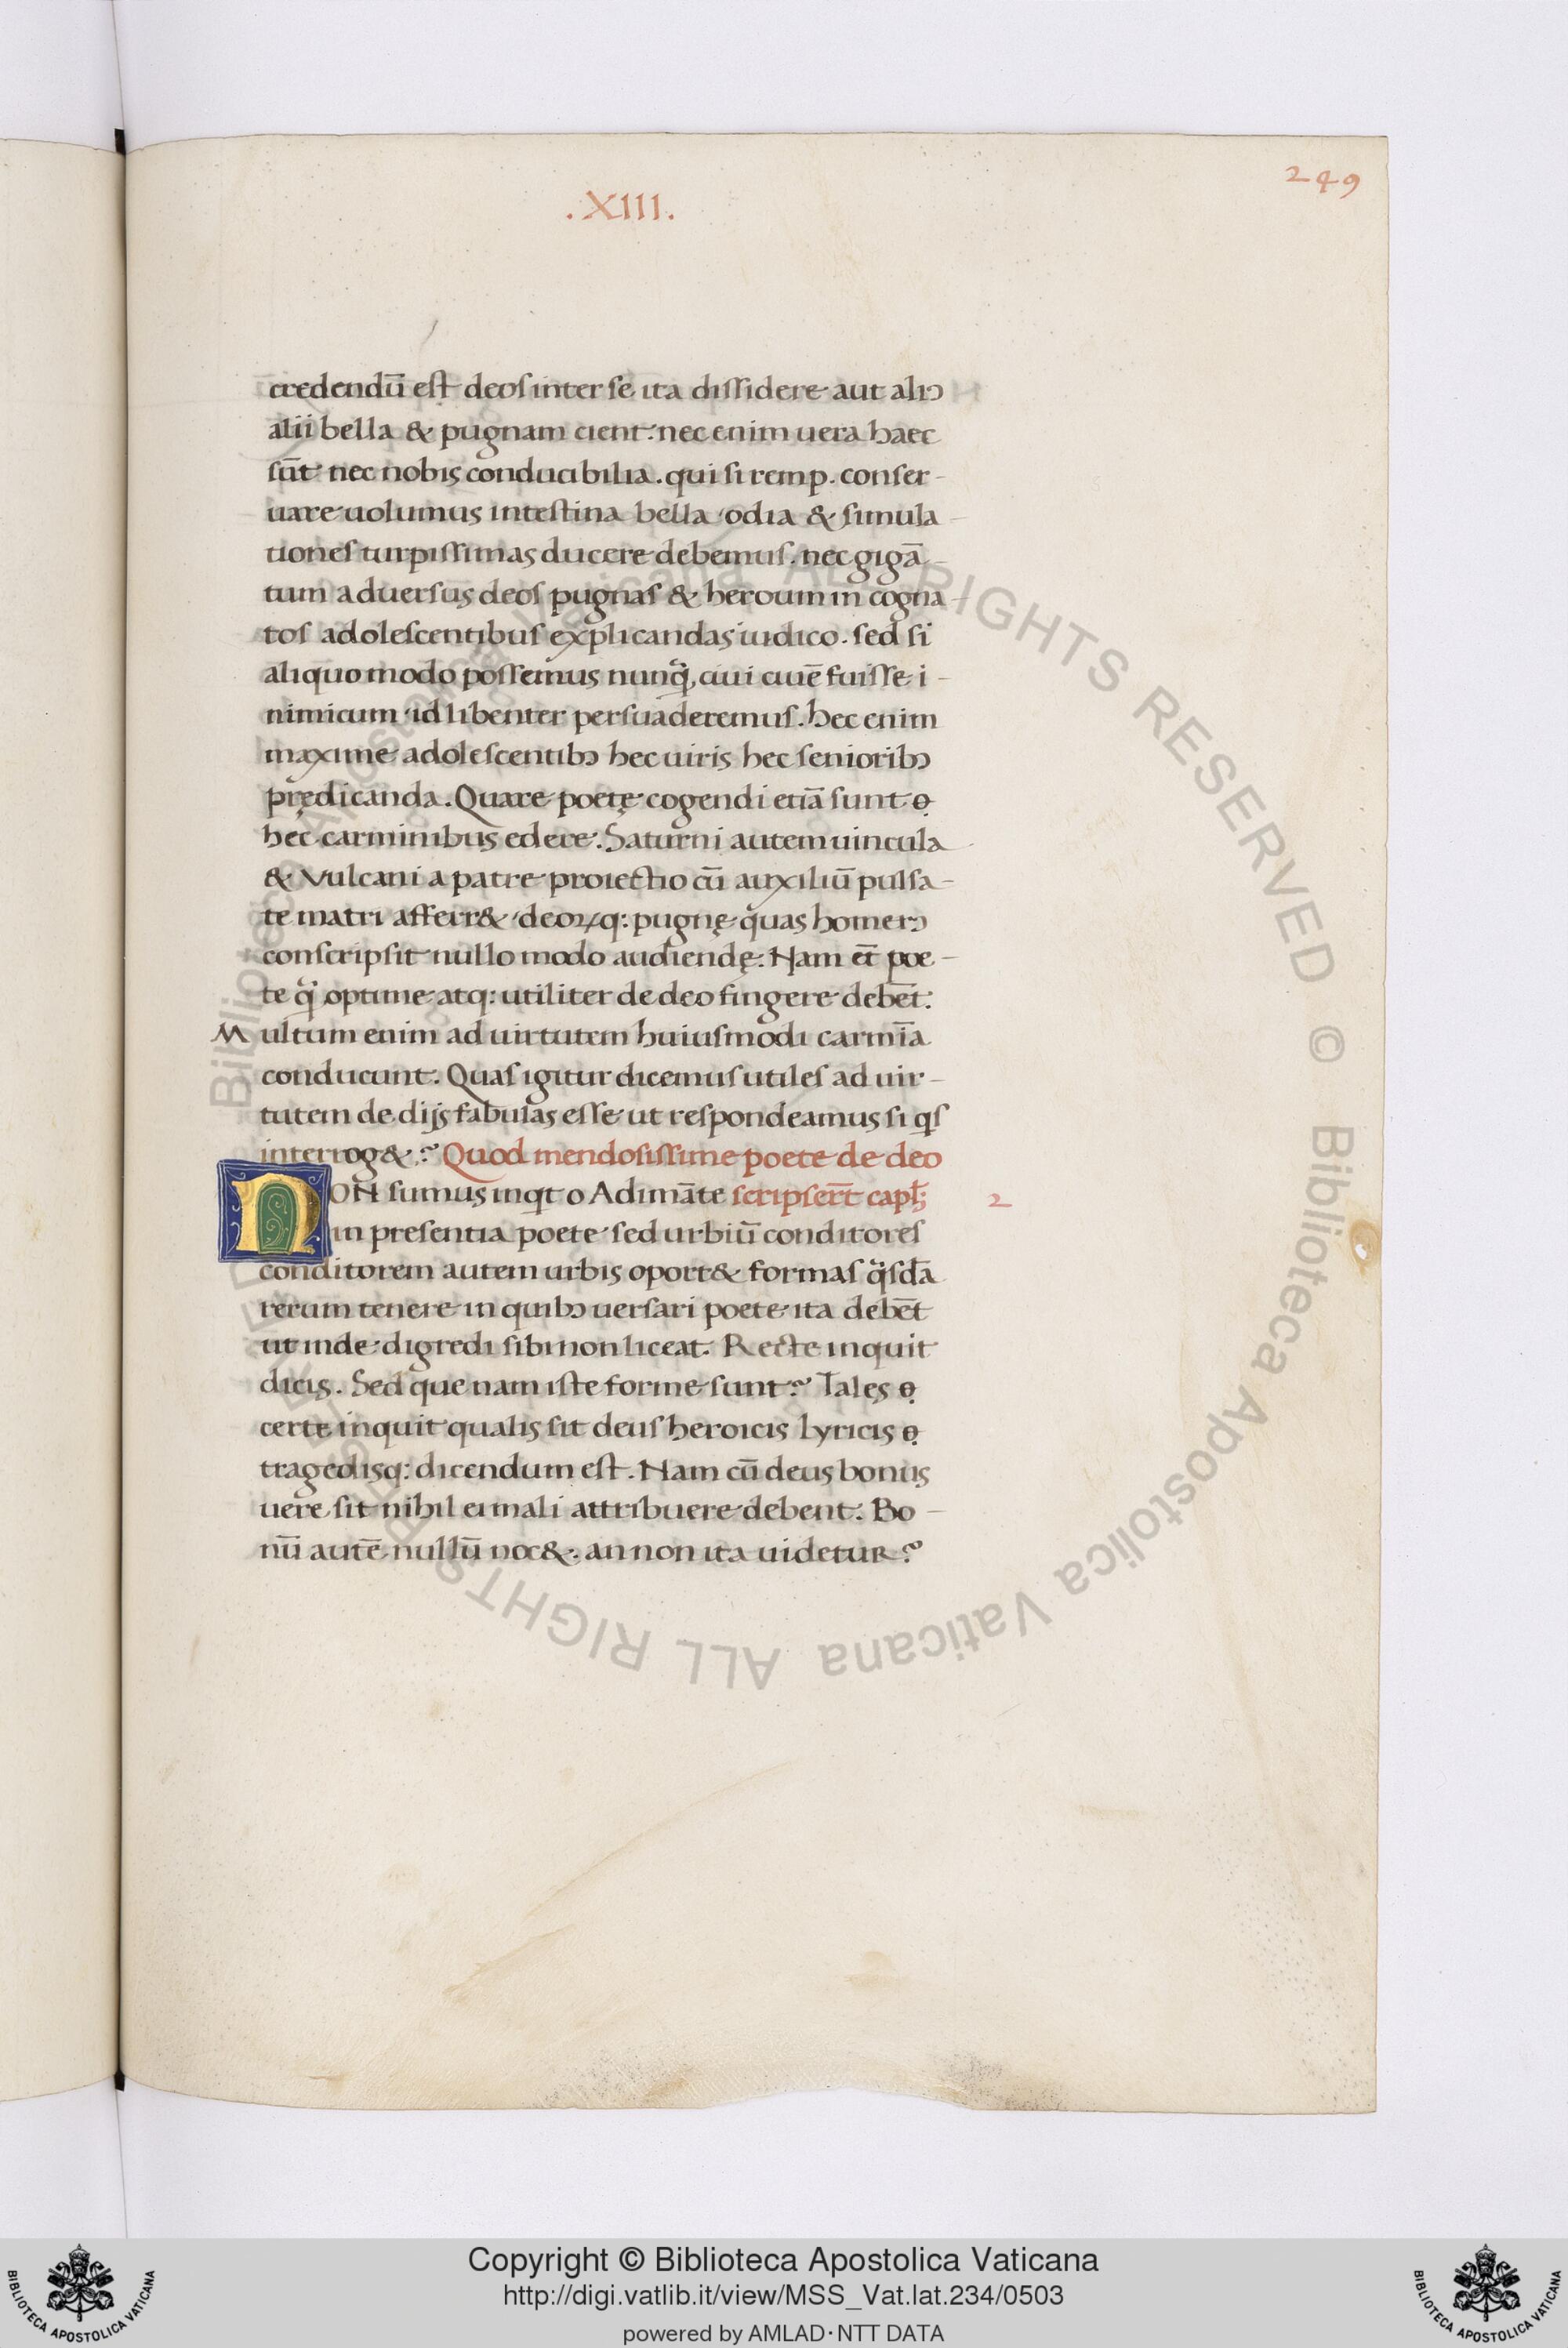 249
.XIII.
credendū est deos inter se ita dissidere aut aliꝰ
alii bella & pugnam cient: nec enim uera haec
sūt nec nobis conducibilia. qui si remp. conser-
uare uolumus intestina bella odia & simula-
tiones turpissimas ducere debemus. nec gigā-
tum aduersus deos pugnas & heroum in cogna-
tos adolescentibus explicandas iudico. sed si
aliquo modo possemus nunq̄ ciui ciuē fuisse i-
nimicum id libenter persuaderemus. Hec enim
maxime adolescentibꝰ hec uiris hec senioribꝰ
prędicanda. Quare poetę cogendi etiā sunt
hec carminibus edere. Saturni autem uincula
& Vulcani a patre proiectio cū auxiliū pulsa-
te matri afferr& deoꝝq: pugnę quas homerꝰ
conscripsit nullo modo audiendę. Nam et poe-
te q̄ optime atq: utiliter de deo fingere debēt:
Multum enim ad uirtutem huiusmodi carmīa
conducunt. Quas igitur dicemus utiles ad uir-
tutem de dijs fabulas esse ut respondeamus si qs
interrog&? Quod mendosissime poete de deo
NON sumus inqt o Adimāte scripsert capl;
2
in presentia poete sed urbiū conditores
conditorem autem urbis oport& formas qsdā
rerum tenere in quibꝰ uersari poete ita debēt
ut inde digredi sibi non liceat. Recte inquit
dicis. Sed que nam iste forme sunt? Tales
certe inquit qualis sit deus heroicis Lyricis
tragedisq: dicendum est. Nam cū deus bonus
uere sit nihil ei mali attribuere debent. Bo-
nū autē nullū noc&. an non ita uidetur?
Biblioteca Apostolica Vaticana ALL RIGHTS RESERVED © Biblioteca Apostolica Vaticana ALL RIGHTS RESERVED ©
Copyright © Biblioteca Apostolica Vaticana
http://digi.vatlib.it/view/MSS_Vat.lat.234/0503
powered by AMLAD·NTT DATA
BIBLIOTECA APOSTOLICA VATICANA
BIBLIOTECA APOSTOLICA VATICANA